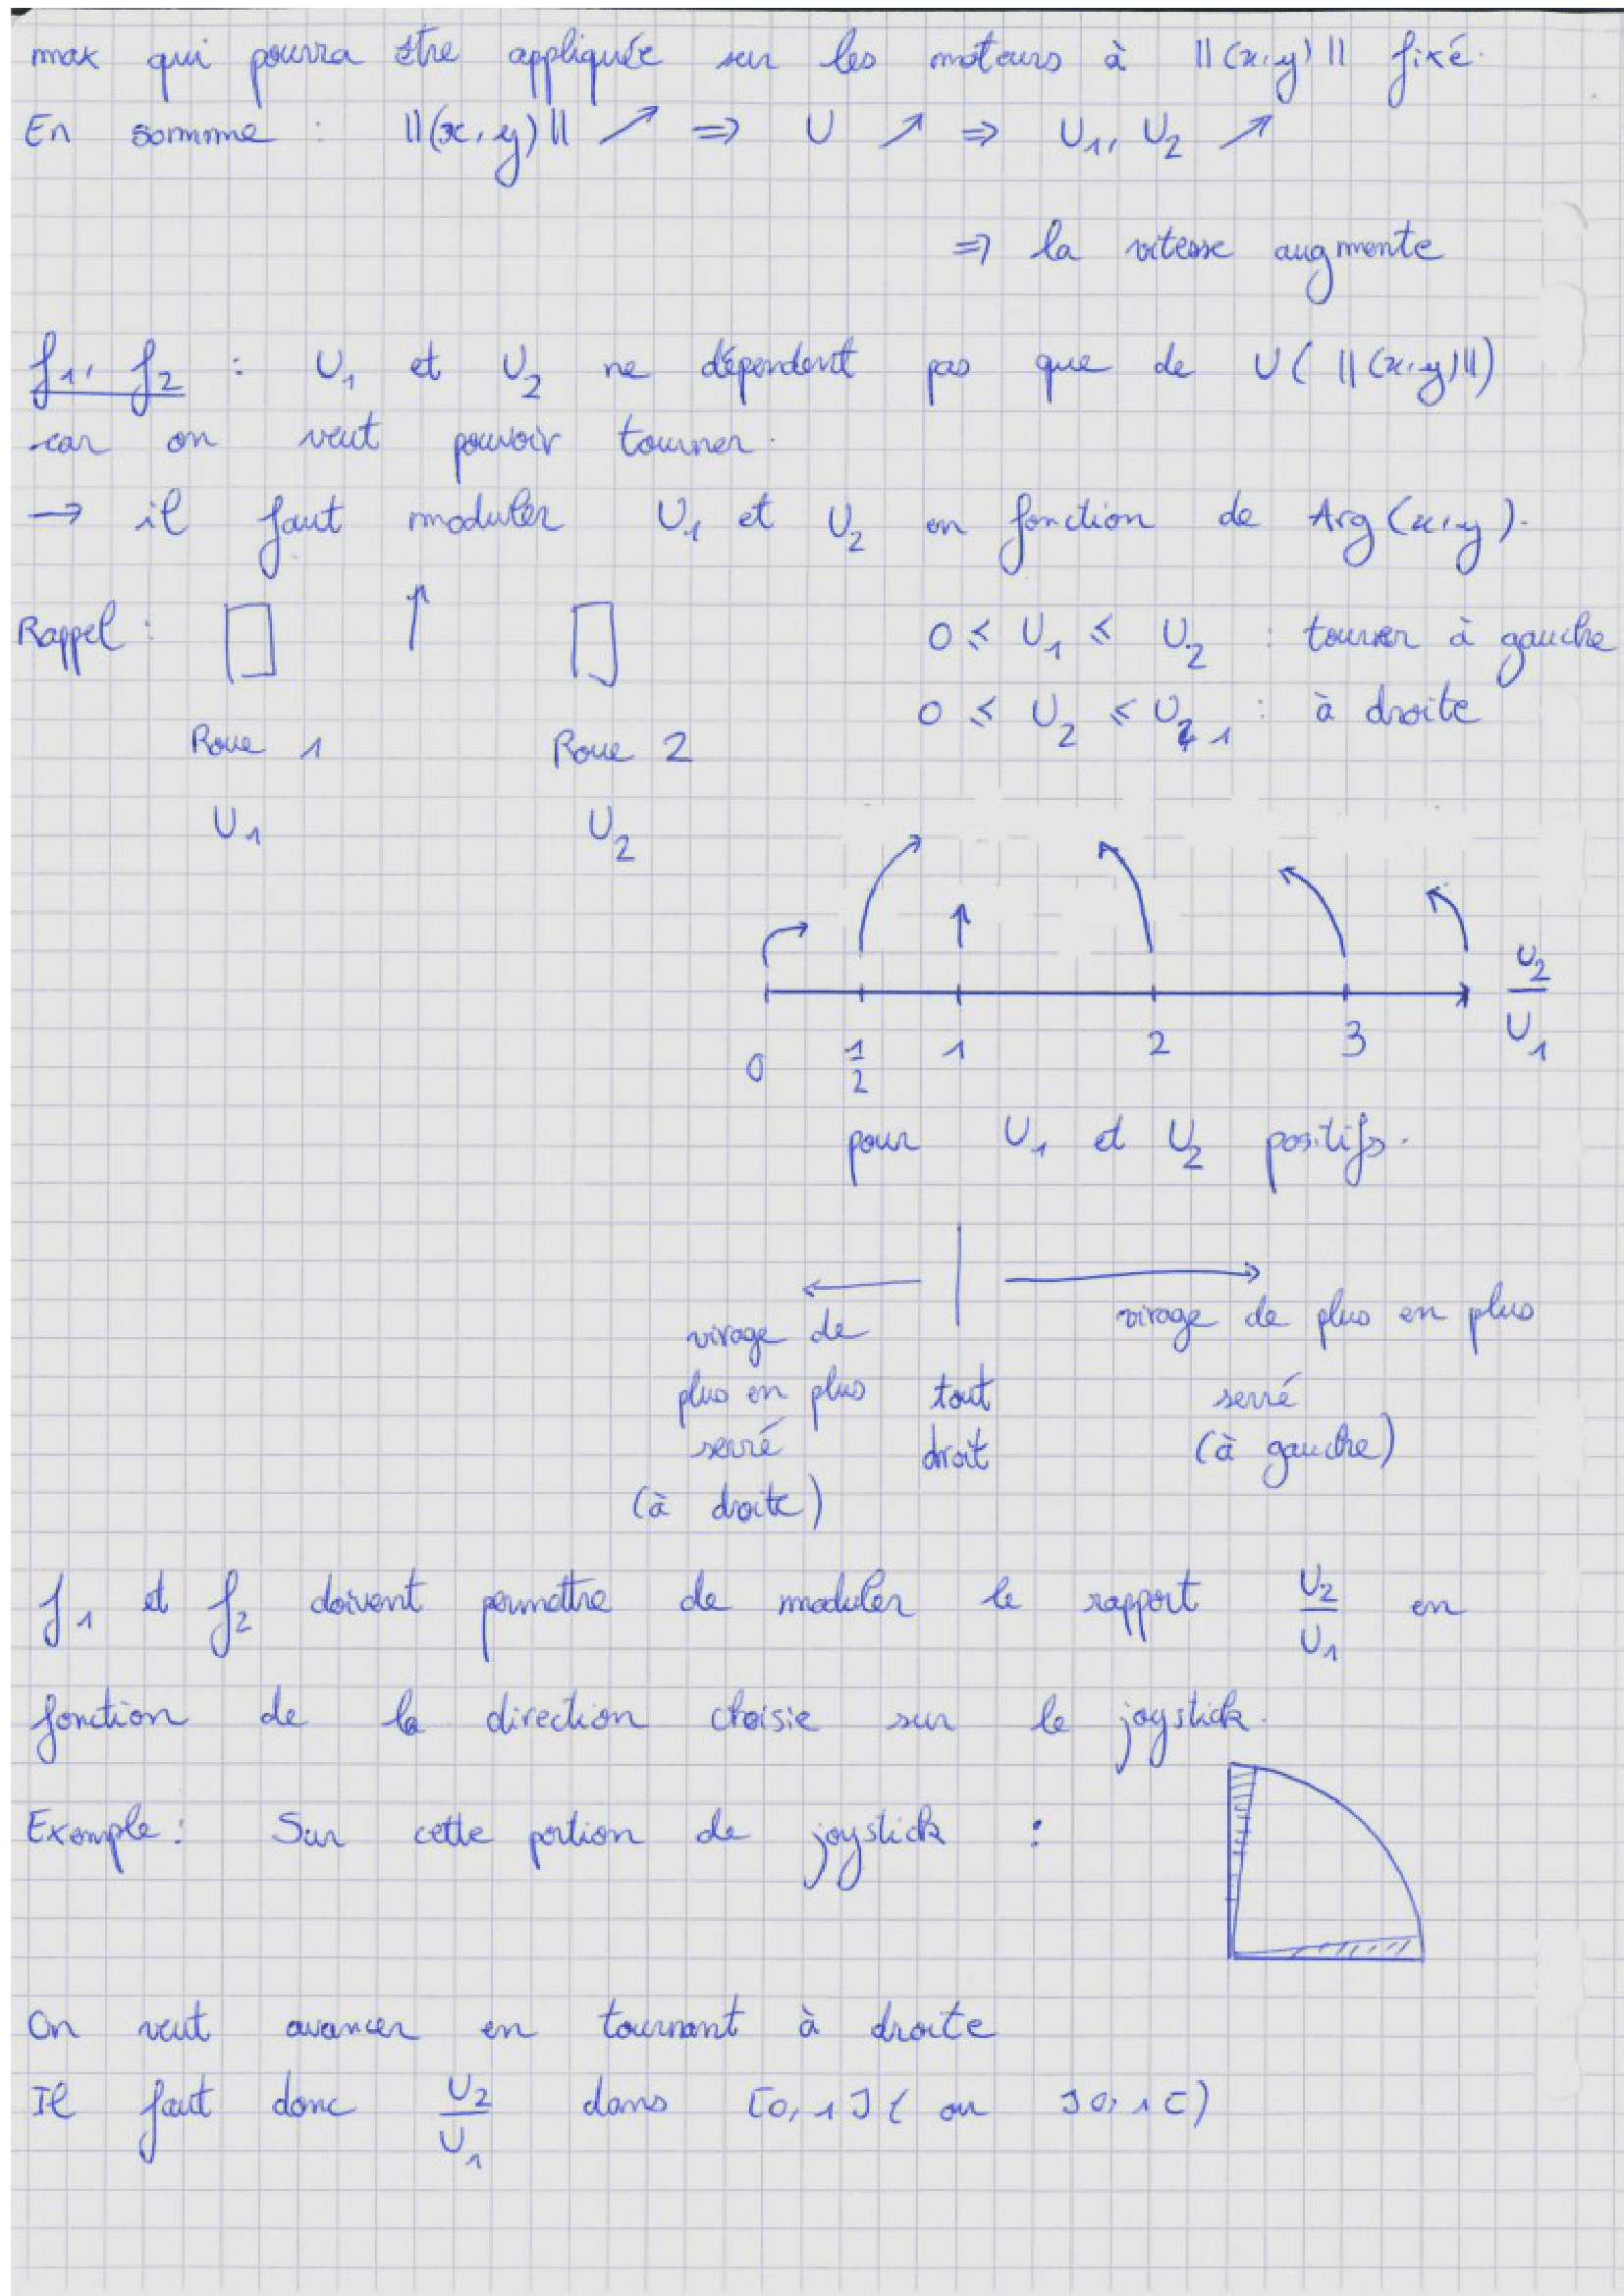 max qui pourra être appliquée sur les moteurs à ||(x,y)|| fixé.
En somme : ||(x,y)|| ↗ ⇒ U ↗ ⇒ U₁, U₂ ↗
⇒ la vitesse augmente
f₁, f₂ : U₁ et U₂ ne dépendent pas que de U(||(x,y)||)
car on veut pouvoir tourner.
→ il faut moduler U₁ et U₂ en fonction de Arg(x,y).
Rappel : ↑ 0 ≤ U₁ ≤ U₂ : tourner à gauche
0 ≤ U₂ ≤ U₁ : à droite
Roue 1 Roue 2
U₁ U₂
U₂/U₁
0 1/2 1 2 3
pour U₁ et U₂ positifs.
virage de plus en plus serré (à droite)
tout droit
virage de plus en plus serré (à gauche)
f₁ et f₂ doivent permettre de moduler le rapport U₂/U₁ en
fonction de la direction choisie sur le joystick.
Exemple : Sur cette portion de joystick :
On veut avancer en tournant à droite
Il faut donc U₂/U₁ dans [0,1] ( ou ]0,1[ )